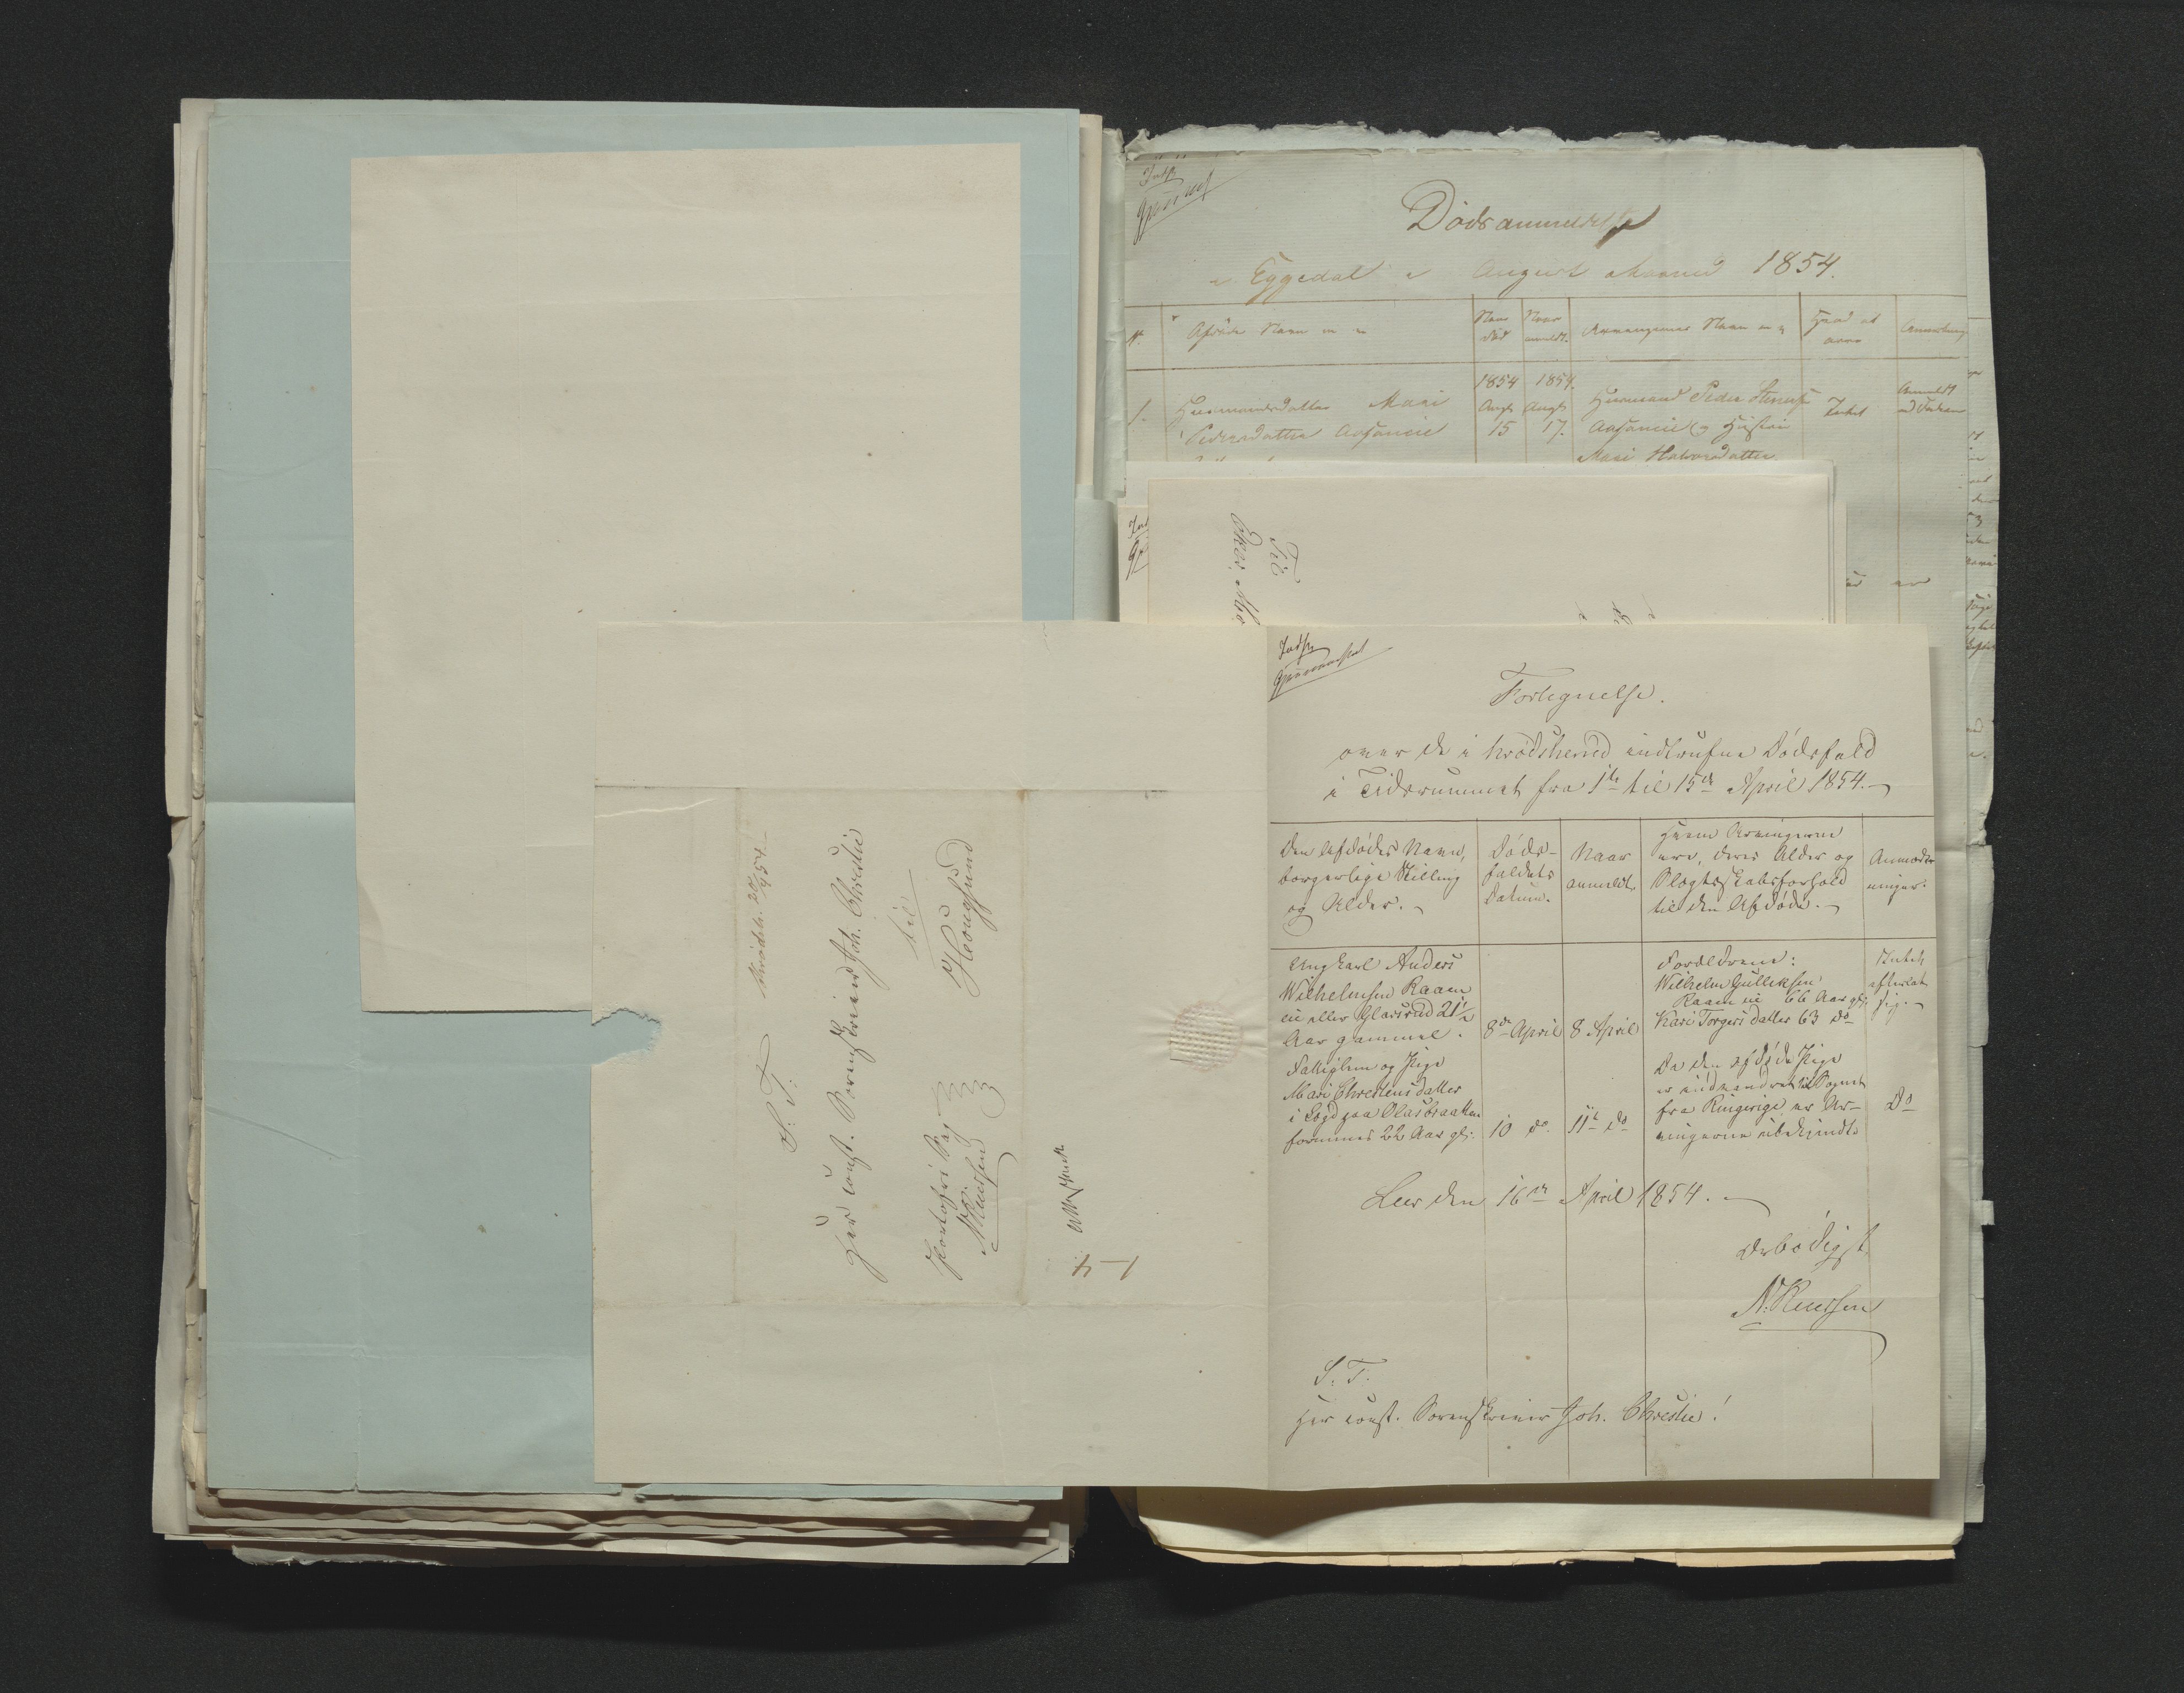 Dødsanmeldelse
i Eggedal i August Maaned 1854.
N.
Afdødes Navn m m
Naar død
Naar anmeldt.
Arvingernes Navn m m
Hvad at arve
Anmærkning
1.
Huusmandsdatter Mari
Pedersdatter Aasaneie
1854
Augt
15
1854.
Augt
17.
Huusmand Peder
Aasaneie og Hustru
Mari Halvorsdatter
Intet
Anmeldt
Til
Fortegnelse.
over de i Krødsherred indtrufne Dødsfald
i Tidsrummet fra 1te til 15de April 1854.
Den Afdødes Navn,
borgerlige Stilling
og Alder.
Døds-
faldets
Datum.
Naar
anmeldt.
Hvem Arvingerne
ere, deres Alder og
Slægtskabsforhold
til den Afdøde.
Anmærk-
ninger.
Ungkarl Anders
Wilhelmsen Raam
eie eller Glæsrud 21½
Aar gammel.
8de April
8 April
Forældrene:
Wilhelm Gulliksen
Raam eie 66 Aar gl.
Kari Torgersdatter 63 do
Intet
efterlat
sig.
Fattiglem og Pige
Mari Christensdatter
i Lægd paa Olasbraatten
formenes 22 Aar gl.
10 do.
11te do
Da den afdøde Pige
er indvandret til Sognet
fra Ringerige er Ar-
vingerne ubekjendt.
Do
Leer den 16de April 1854.
Ærbødigst
N. Knussen
S. T.
Herr const. Sorenskriver Joh. Christie!
Krødsh. 20/4 54
S. T.
Herr const. Sorenskriver Joh. Christie
til
Hougsund
Portofri Sag
N. Knussen